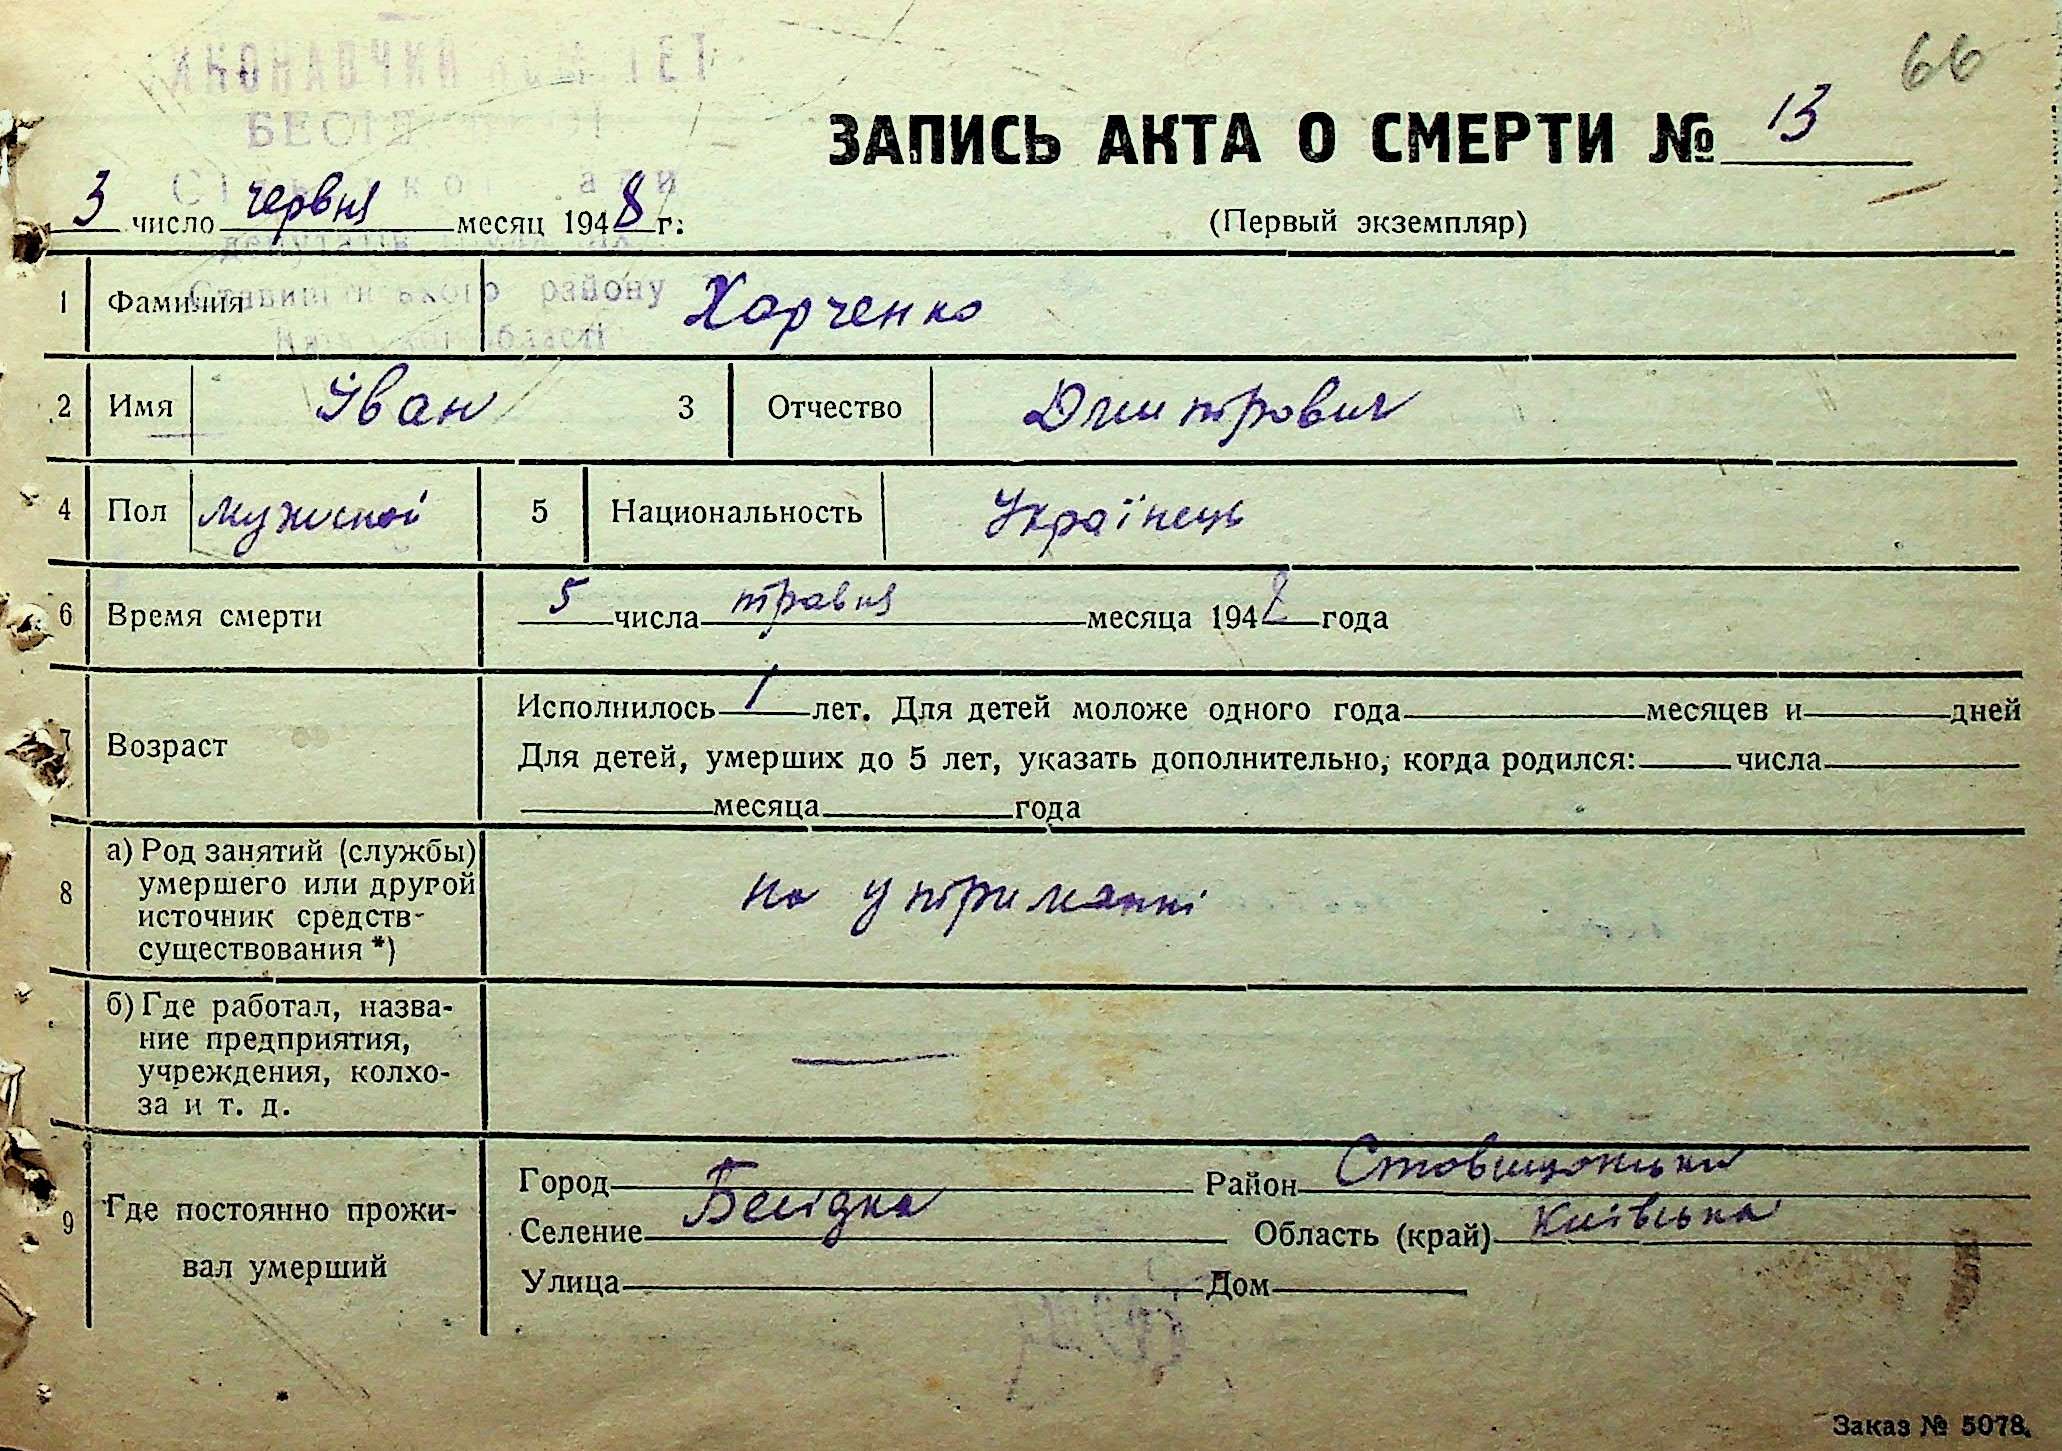 66
ЗАПИСЬ АКТА О СМЕРТИ № 13
3 число червня месяц 1948 г.
(Первый экземпляр)
БЕСІД
району
області
1 Фамилия Харченко
2 Имя Іван 3 Отчество Дмитрович
4 Пол мужской 5 Национальность Українець
6 Время смерти 5 числа травня месяца 1948 года
7 Возраст
Исполнилось 1 лет. Для детей моложе одного года месяцев и дней
Для детей, умерших до 5 лет, указать дополнительно, когда родился: числа
месяца года
8 а) Род занятий (службы)
умершего или другой
источник средств
существования *)
на утриманні
б) Где работал, назва-
ние предприятия,
учреждения, колхо-
за и т. д.
—
9 Где постоянно прожи-
вал умерший
Город Район Ставищанський
Селение Бесідка Область (край) Київська
Улица Дом
Заказ № 5078.